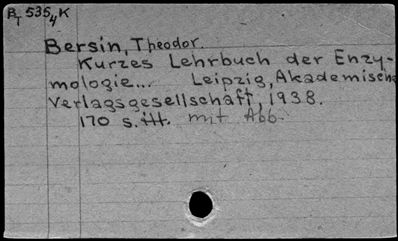 B, 535,4 K
Bersin, Theodor.
Kurzes Lehrbuch der Enzy-
mologie... Leipzig, Akademische
Verlagsgesellschaft, 1938.
170 s. ill. mit Abb.